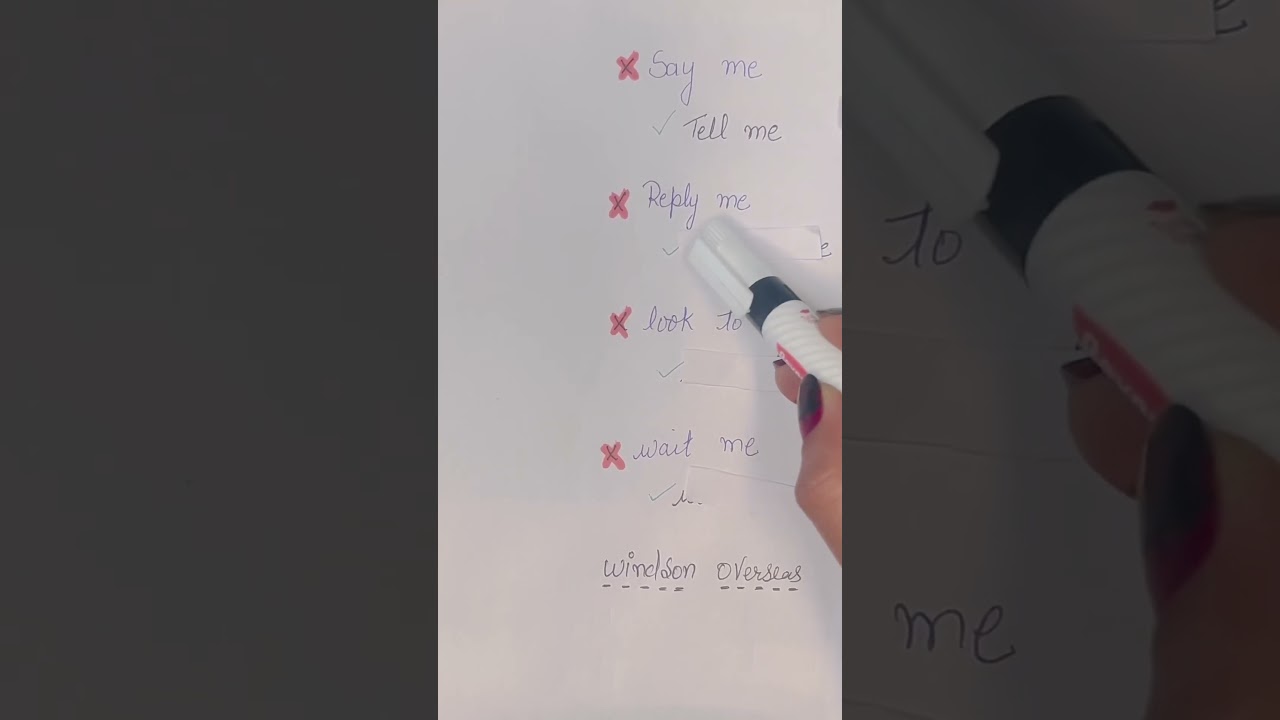 Say me
Tell me
Reply me
look to
wait me
windson overseas
To
me